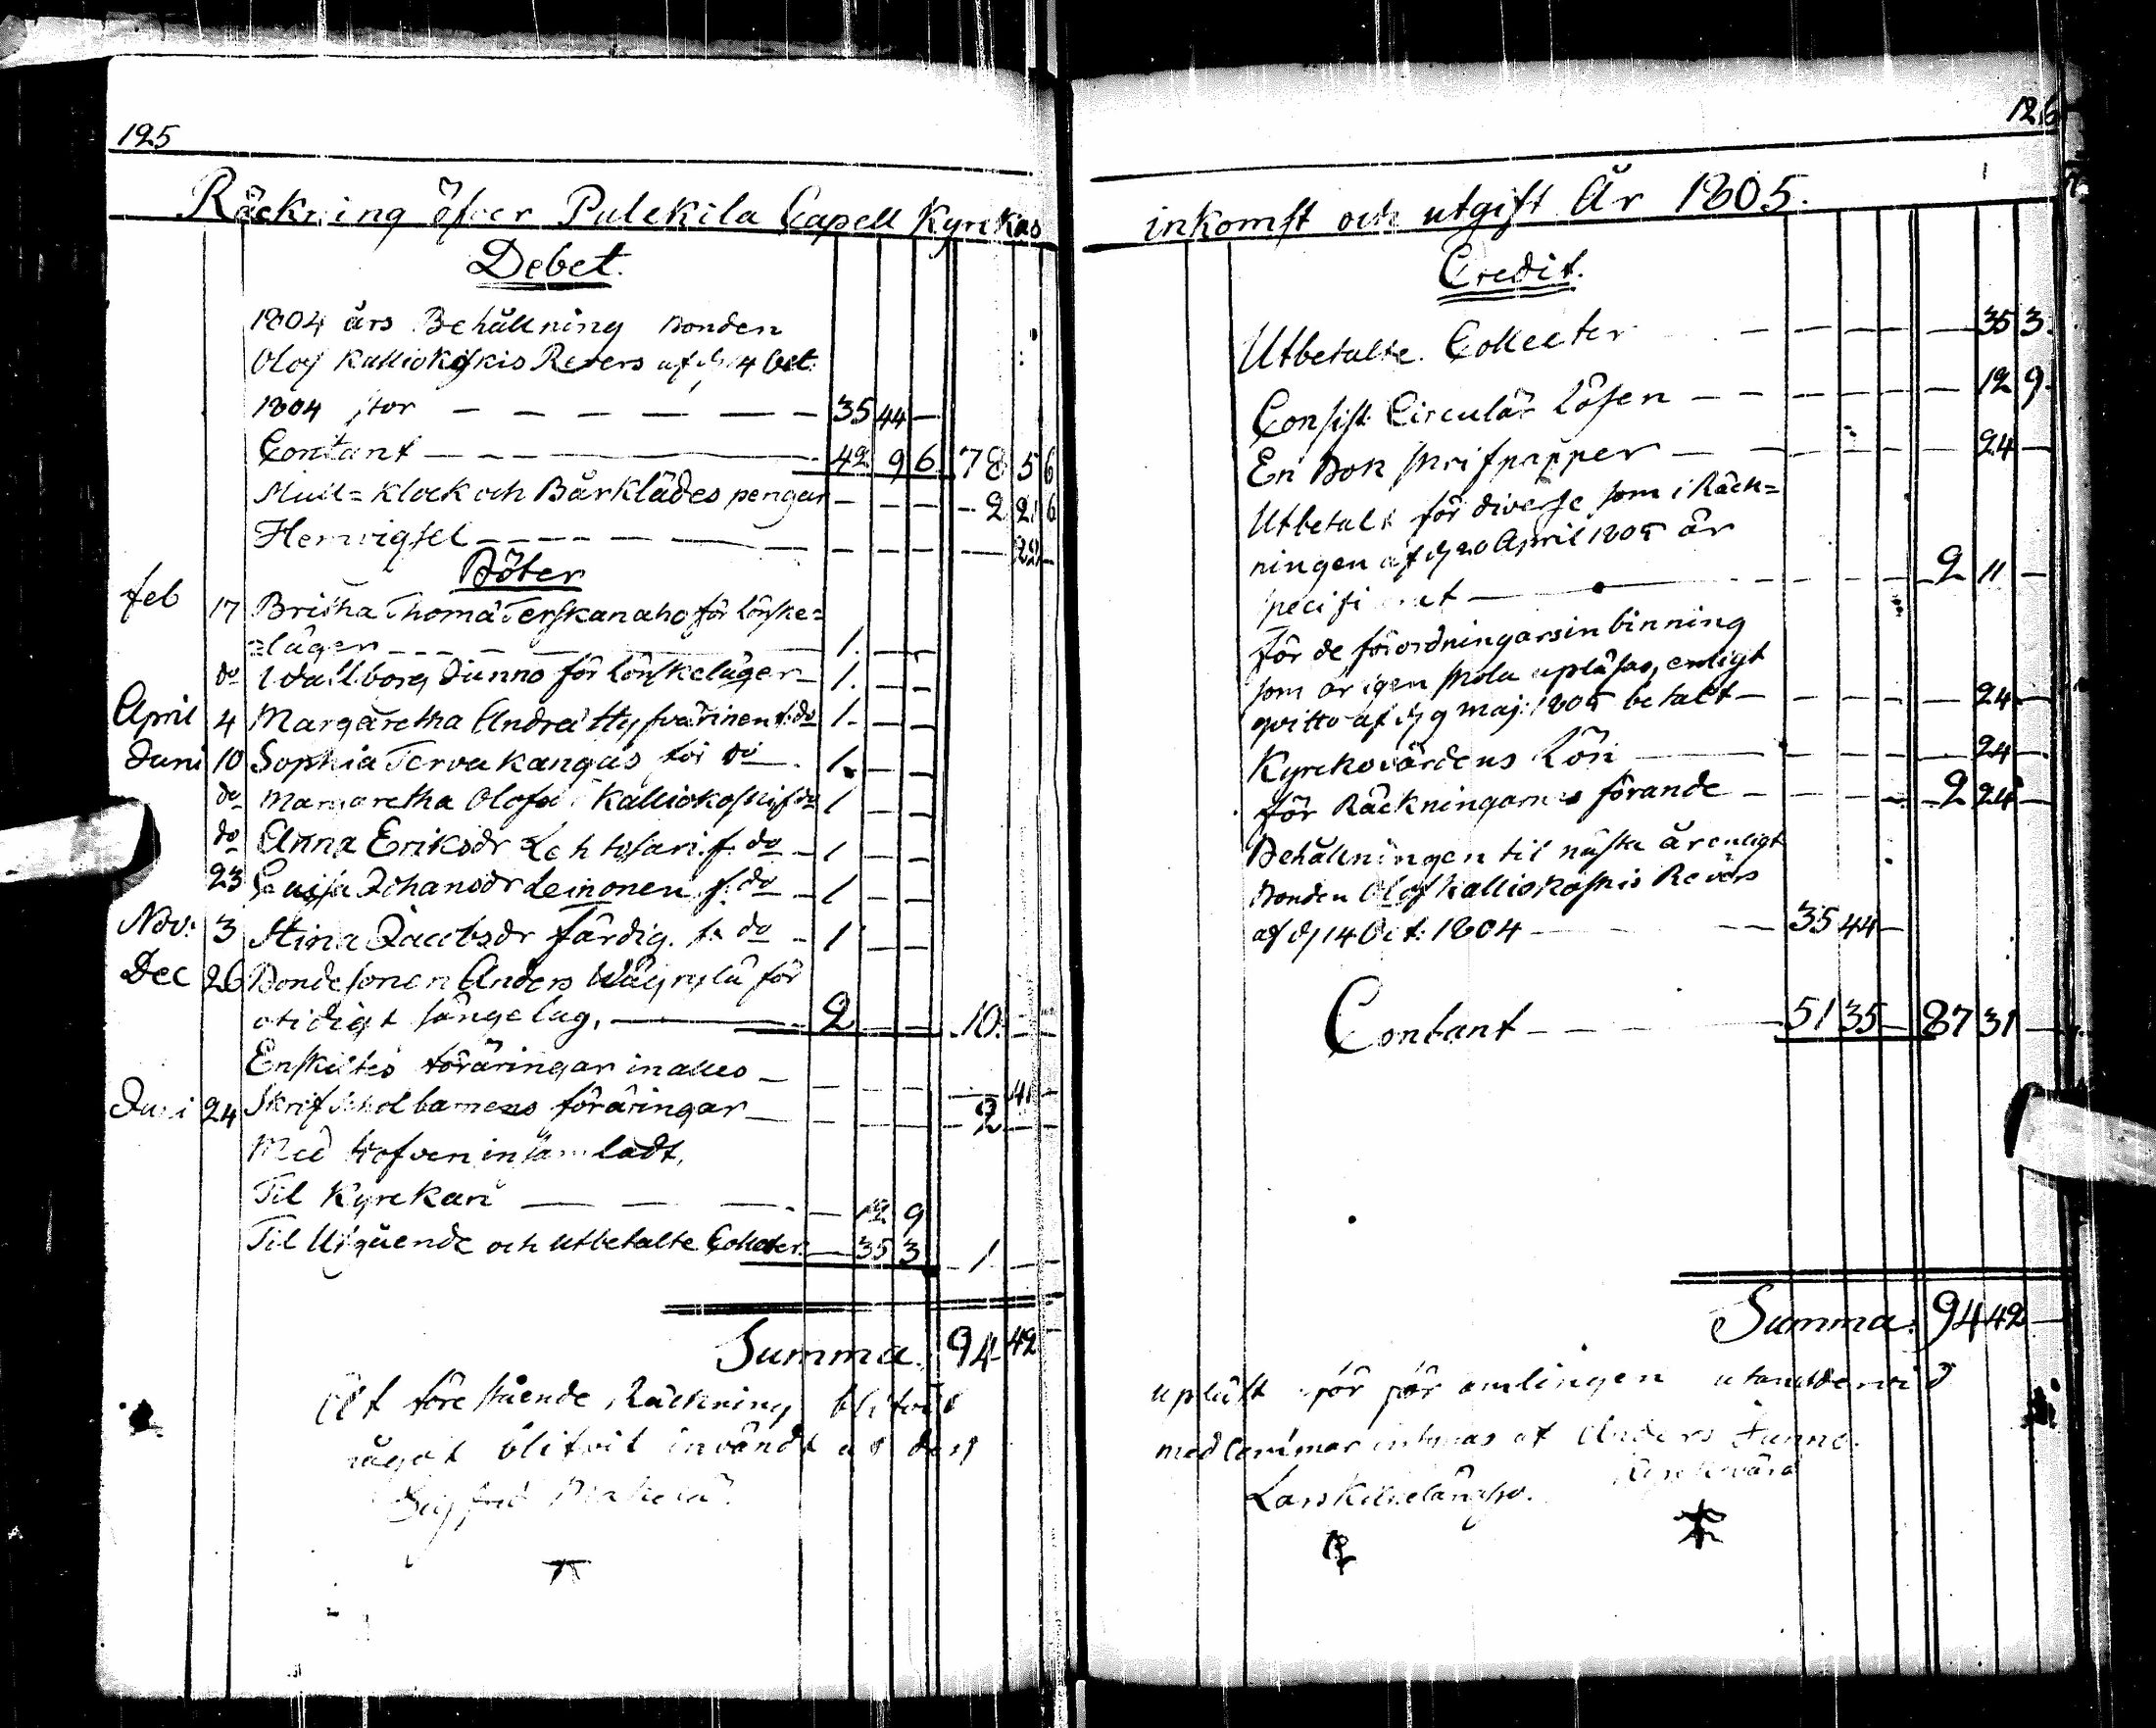 125
Räckning öfver Pulckila Capell Kyrckas
Debet.
1804 års Behållning Bonden
Olof Kalliokoskis Revers af d 14 Oct.
1804 stor — — — — — — 35 44 —
Contant — — — — 42 9 6 78 5 6
Mull= Klock och Bårklädes pengar — — — — 2 21 6
Hemvigsel — — — — — — 22 —
Böter
feb 17 Britha Thomä Terskanaho för lönske=
=läger — — — 1. — —
do Wallborg Junno för lönskeläger — 1. — —
April 4 Margaretha Andrä Hysvärinen f. do 1. — —
Juni 10 Sophia Tervakangas för do — 1. — —
do Margaretha Olofsdr Kalliokoski f. do 1 — —
do Anna Eriksdr Lehtosari f. do — 1 — —
23 Caisa Johansdr Leinonen f. do — 1 — —
Nov: 3 Stina Jacobsdr färdig. f. do — 1 — —
Dec 26 Bondesonen Anders för
otidigt sängelag, — 2 — — 10. — —
Enskiltes föräringar in alles — — — — — 41 —
Juni 24 Skrifscholbarnens föräringar — — — — 2 — —
Med Hofven insamladt,
Til Kyrckan — — — — 12 9
Til Utgående och utbetalte Collecter. — 35 3 1 — —
Summa. 94 42 —
At förestående Räckning blifvit
något blifvit invändt
Sigfrid
126
inkomst och utgift År 1805.
Credit.
Utbetalte Collecter — — — — — 35 3.
Consist: Circulär lösen — — — — — 12 9.
En Bok skrifpapper — — — — — 24 —
Utbetalt för diverse som i Räck=
ningen af d 20 April 1805 är
specificerat — — — — — 2 11 —
För de förordningars inbinning
som är igen skola upläsas, enligt
qvitto af d 9 Maj: 1805 betalt — — — — — 24 —
Kyrckovärdens Lön — — — — — 24 —
För Räckningarnes förande — — — — 2 24 —
Behållningen til nästa år enligt
Bonden Olof Kalliokoskis Revers
af d 14 Oct: 1804 — — — 35 44 —
Contant — — — 51 35 — 87 31 —
Summa. 94 42 —
upläst för församlingen utan at dervid
med Cammar intygas af Anders Junno.
Lars Kyrckovärd